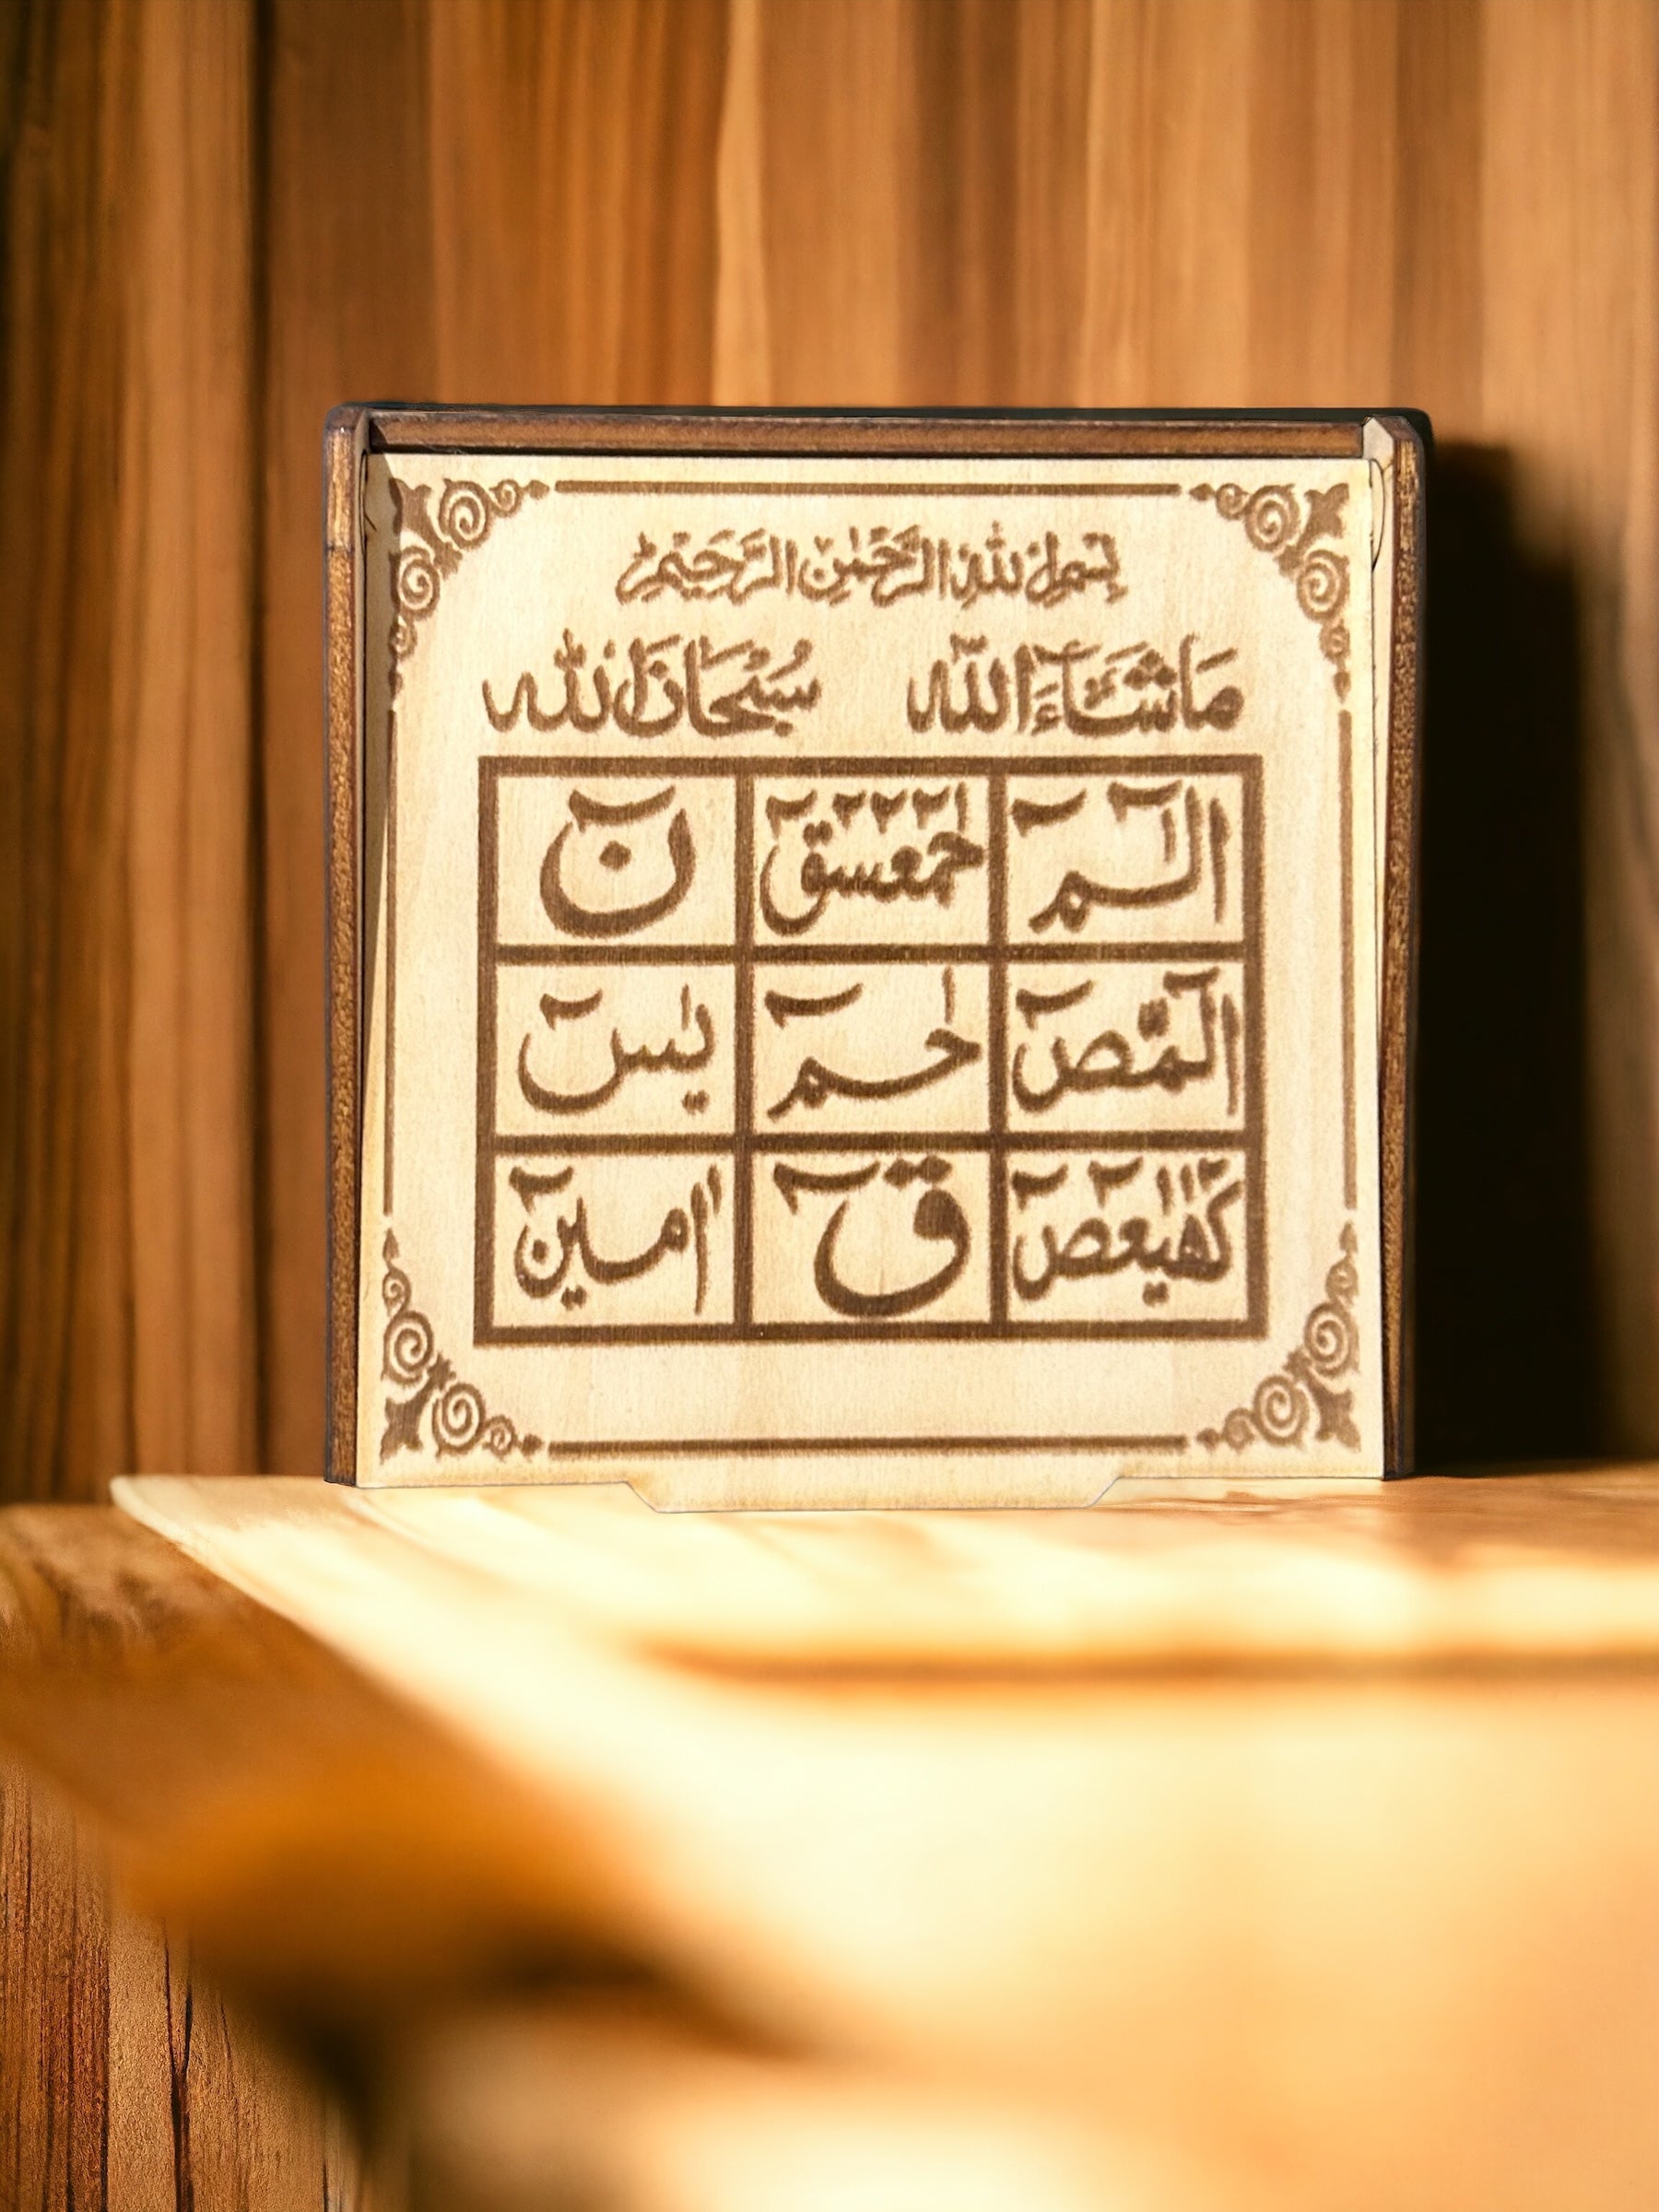 بسم الله الرحمن الرحيم
ما شاء الله سبحان الله
الم حمعسق ن
المص حم يس
كهيعص ق امين